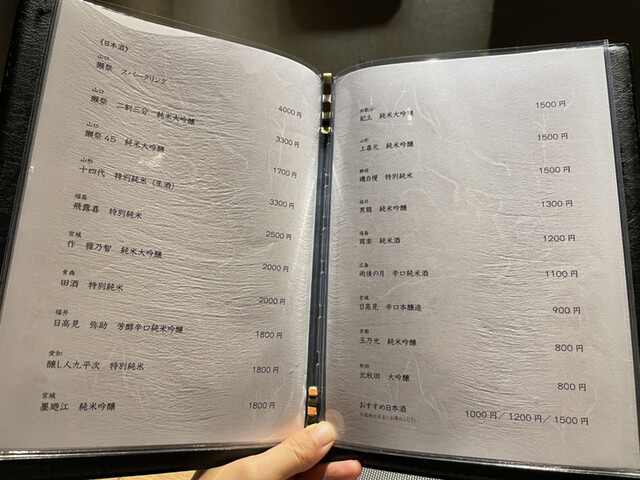 《日本酒》
山口
獺祭 スパークリング 4000円
山口
獺祭 二割三分 純米大吟醸 3300円
山口
獺祭45 純米大吟醸 1700円
山形
十四代 特別純米(生酒) 3300円
福島
飛露喜 特別純米 2500円
宮城
作 雅乃智 純米大吟醸 2000円
青森
田酒 特別純米 2000円
福井
日高見 弥助 芳醇辛口純米吟醸 1800円
愛知
醸し人九平次 特別純米 1800円
宮城
墨廼江 純米吟醸 1800円
和歌山
紀土 純米大吟醸 1500円
山形
上喜元 純米吟醸 1500円
静岡
磯自慢 特別純米 1500円
福井
黒龍 純米吟醸 1300円
福島
寫楽 純米酒 1200円
広島
雨後の月 辛口純米酒 1100円
宮城
日高見 辛口本醸造 900円
京都
玉乃光 純米吟醸 800円
秋田
北秋田 大吟醸 800円
おすすめ日本酒 1000円/1200円/1500円